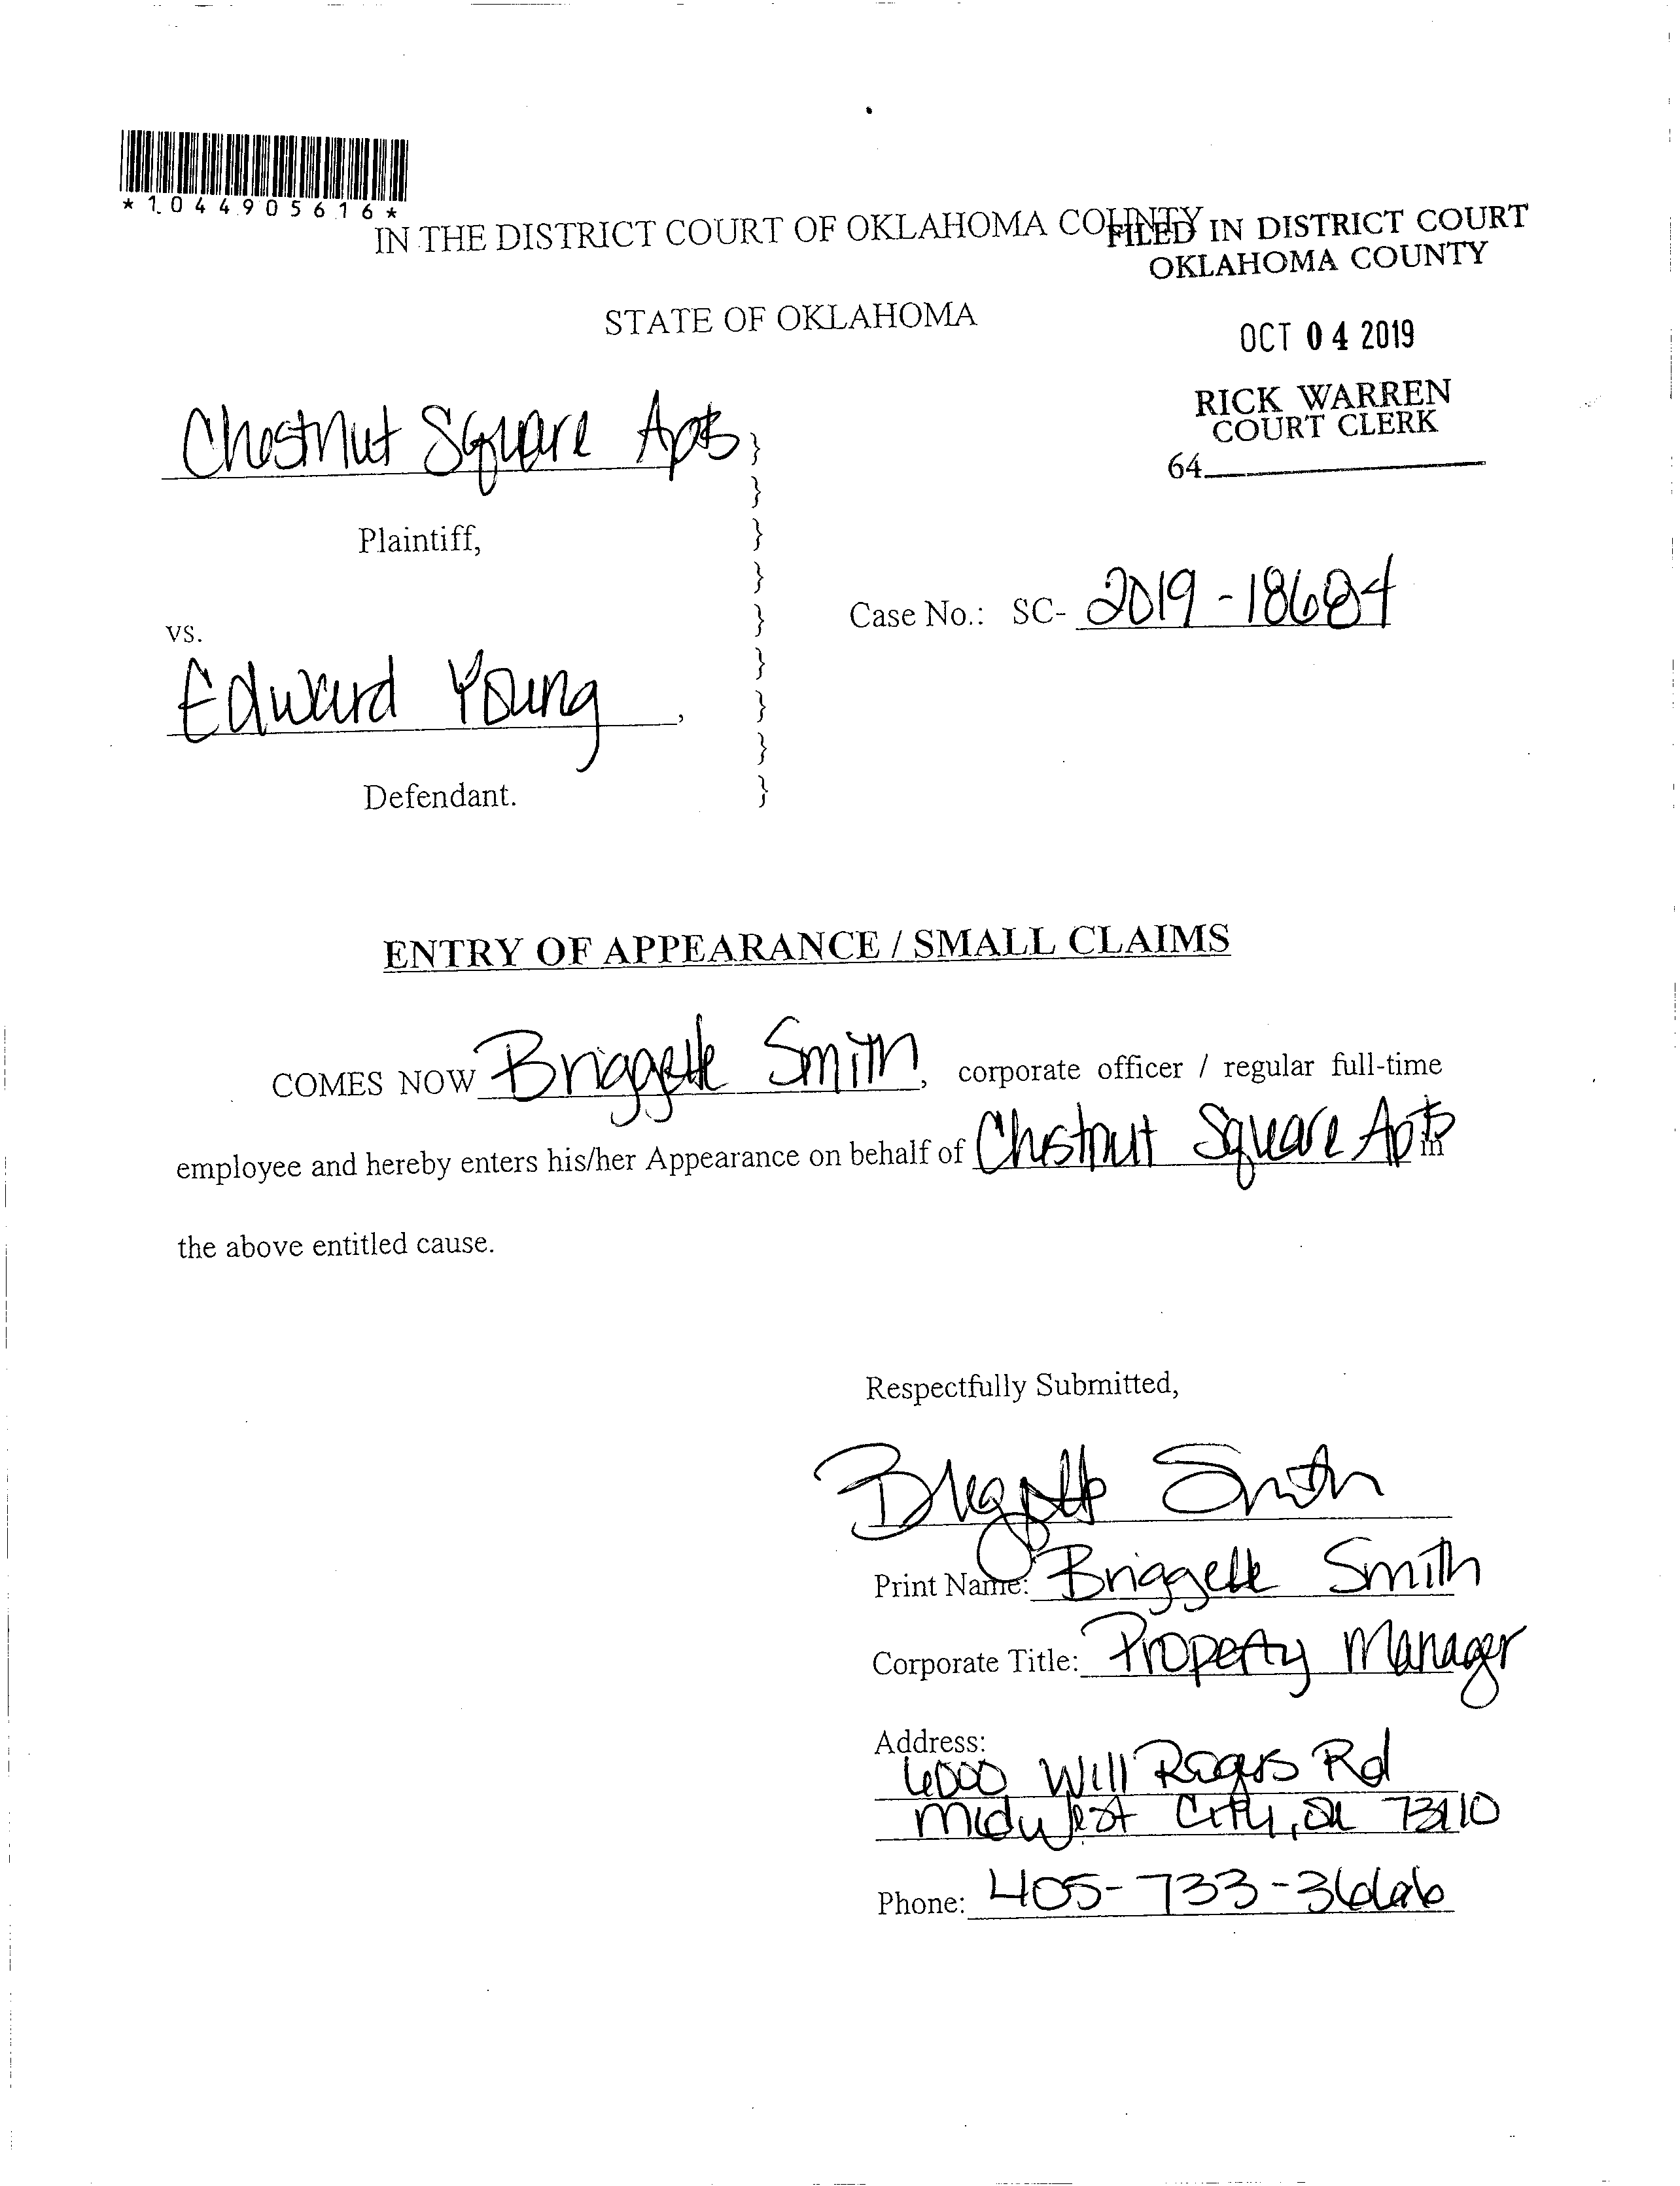 *1044905616*
IN THE DISTRICT COURT OF OKLAHOMA COUNTY
FILED IN DISTRICT COURT
OKLAHOMA COUNTY
STATE OF OKLAHOMA
OCT 04 2019
RICK WARREN
COURT CLERK
64
Chestnut Square Apts,
Plaintiff,
vs.
Case No.: SC- 2019-18684
Edward Young,
Defendant.
ENTRY OF APPEARANCE / SMALL CLAIMS
COMES NOW Briggette Smith, corporate officer / regular full-time
employee and hereby enters his/her Appearance on behalf of Chestnut Square Apts in
the above entitled cause.
Respectfully Submitted,
Briggette Smith
Print Name: Briggette Smith
Corporate Title: Property Manager
Address:
6000 Will Rogers Rd
Midwest City, OK 73110
Phone: 405-733-3666